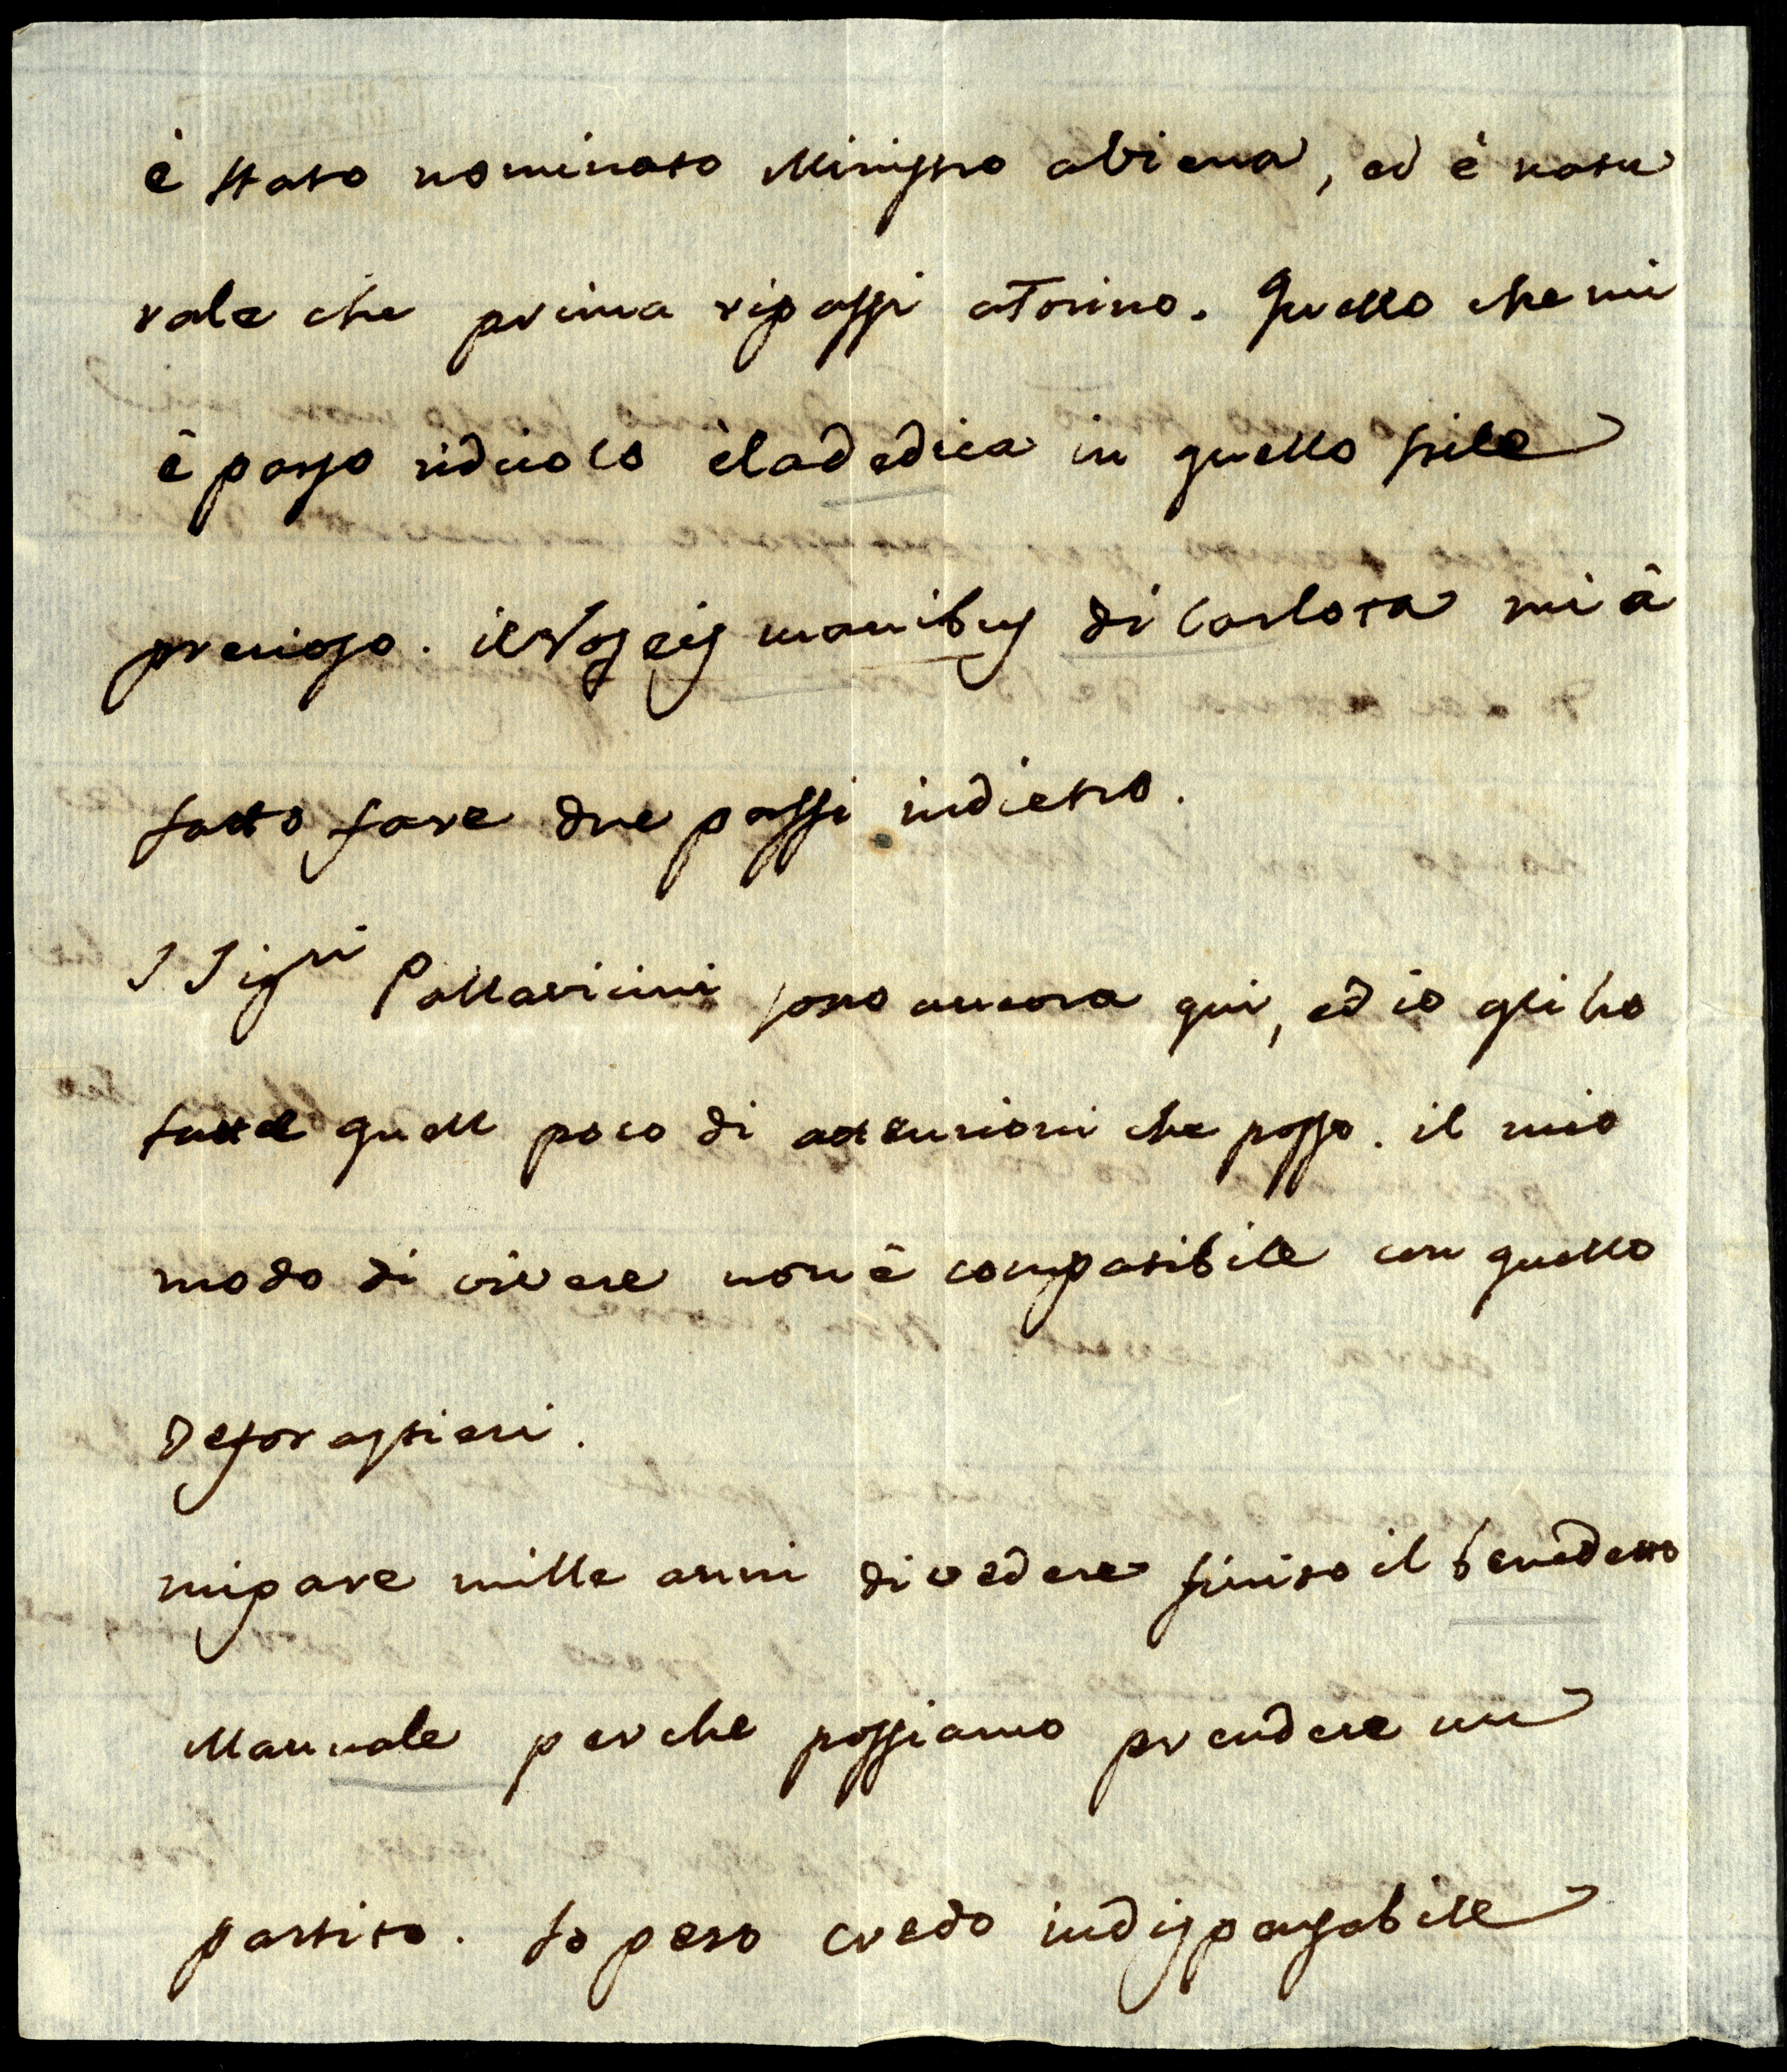 è stato nominato Ministro aviena, ed è natu
rale che prima ripassi aTorino. Quello che mi
è parso ridicolo èladedica in quello stile
prezioso. il manibus di Carlota mi â
fatto fare due passi indietro.
I Sigri Pallavicini sono ancora qui, ed io gli ho
fatte quell poco di attenzioni che posso. il mio
modo di vivere non è compatibile con quello
deforastieri.
mipare mille anni divedere finito il benedetto
Manuale perche possiamo prendere un
partito. Io pero credo indispensabile